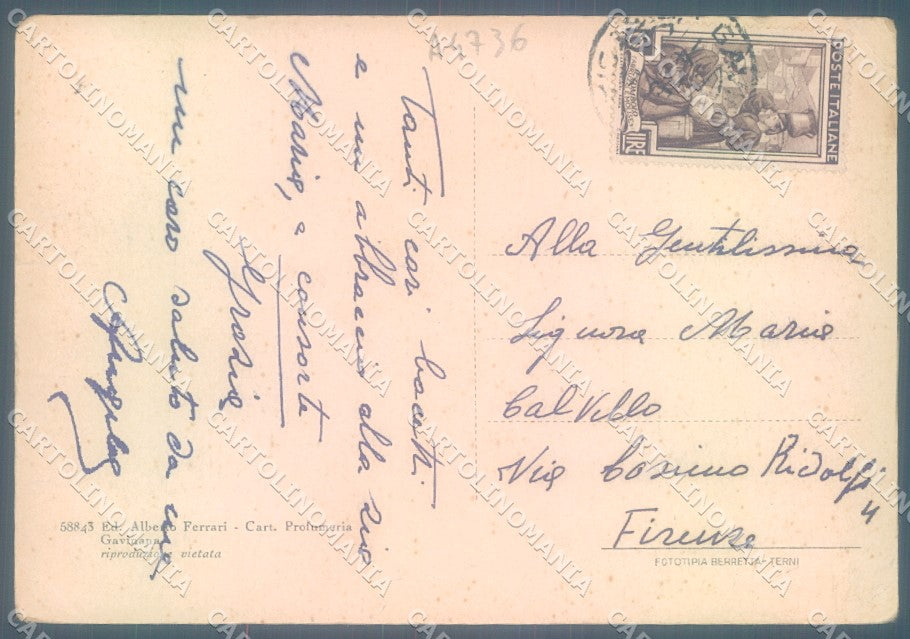 A4736
Tanti cari bacetti
e un abbraccio alla zia
Maria, e consorte
Grazia
un caro saluto da me
POSTE ITALIANE
LIRE
Alla Gentilissima
Signora Maria
Calvello
Via Cosimo Ridolfi
4
Firenze
58843 Ed. Alberto Ferrari - Cart. Profumeria
Gavignano
riproduzione vietata
FOTOTIPIA BERRETTA - TERNI
CARTOLINOMANIA